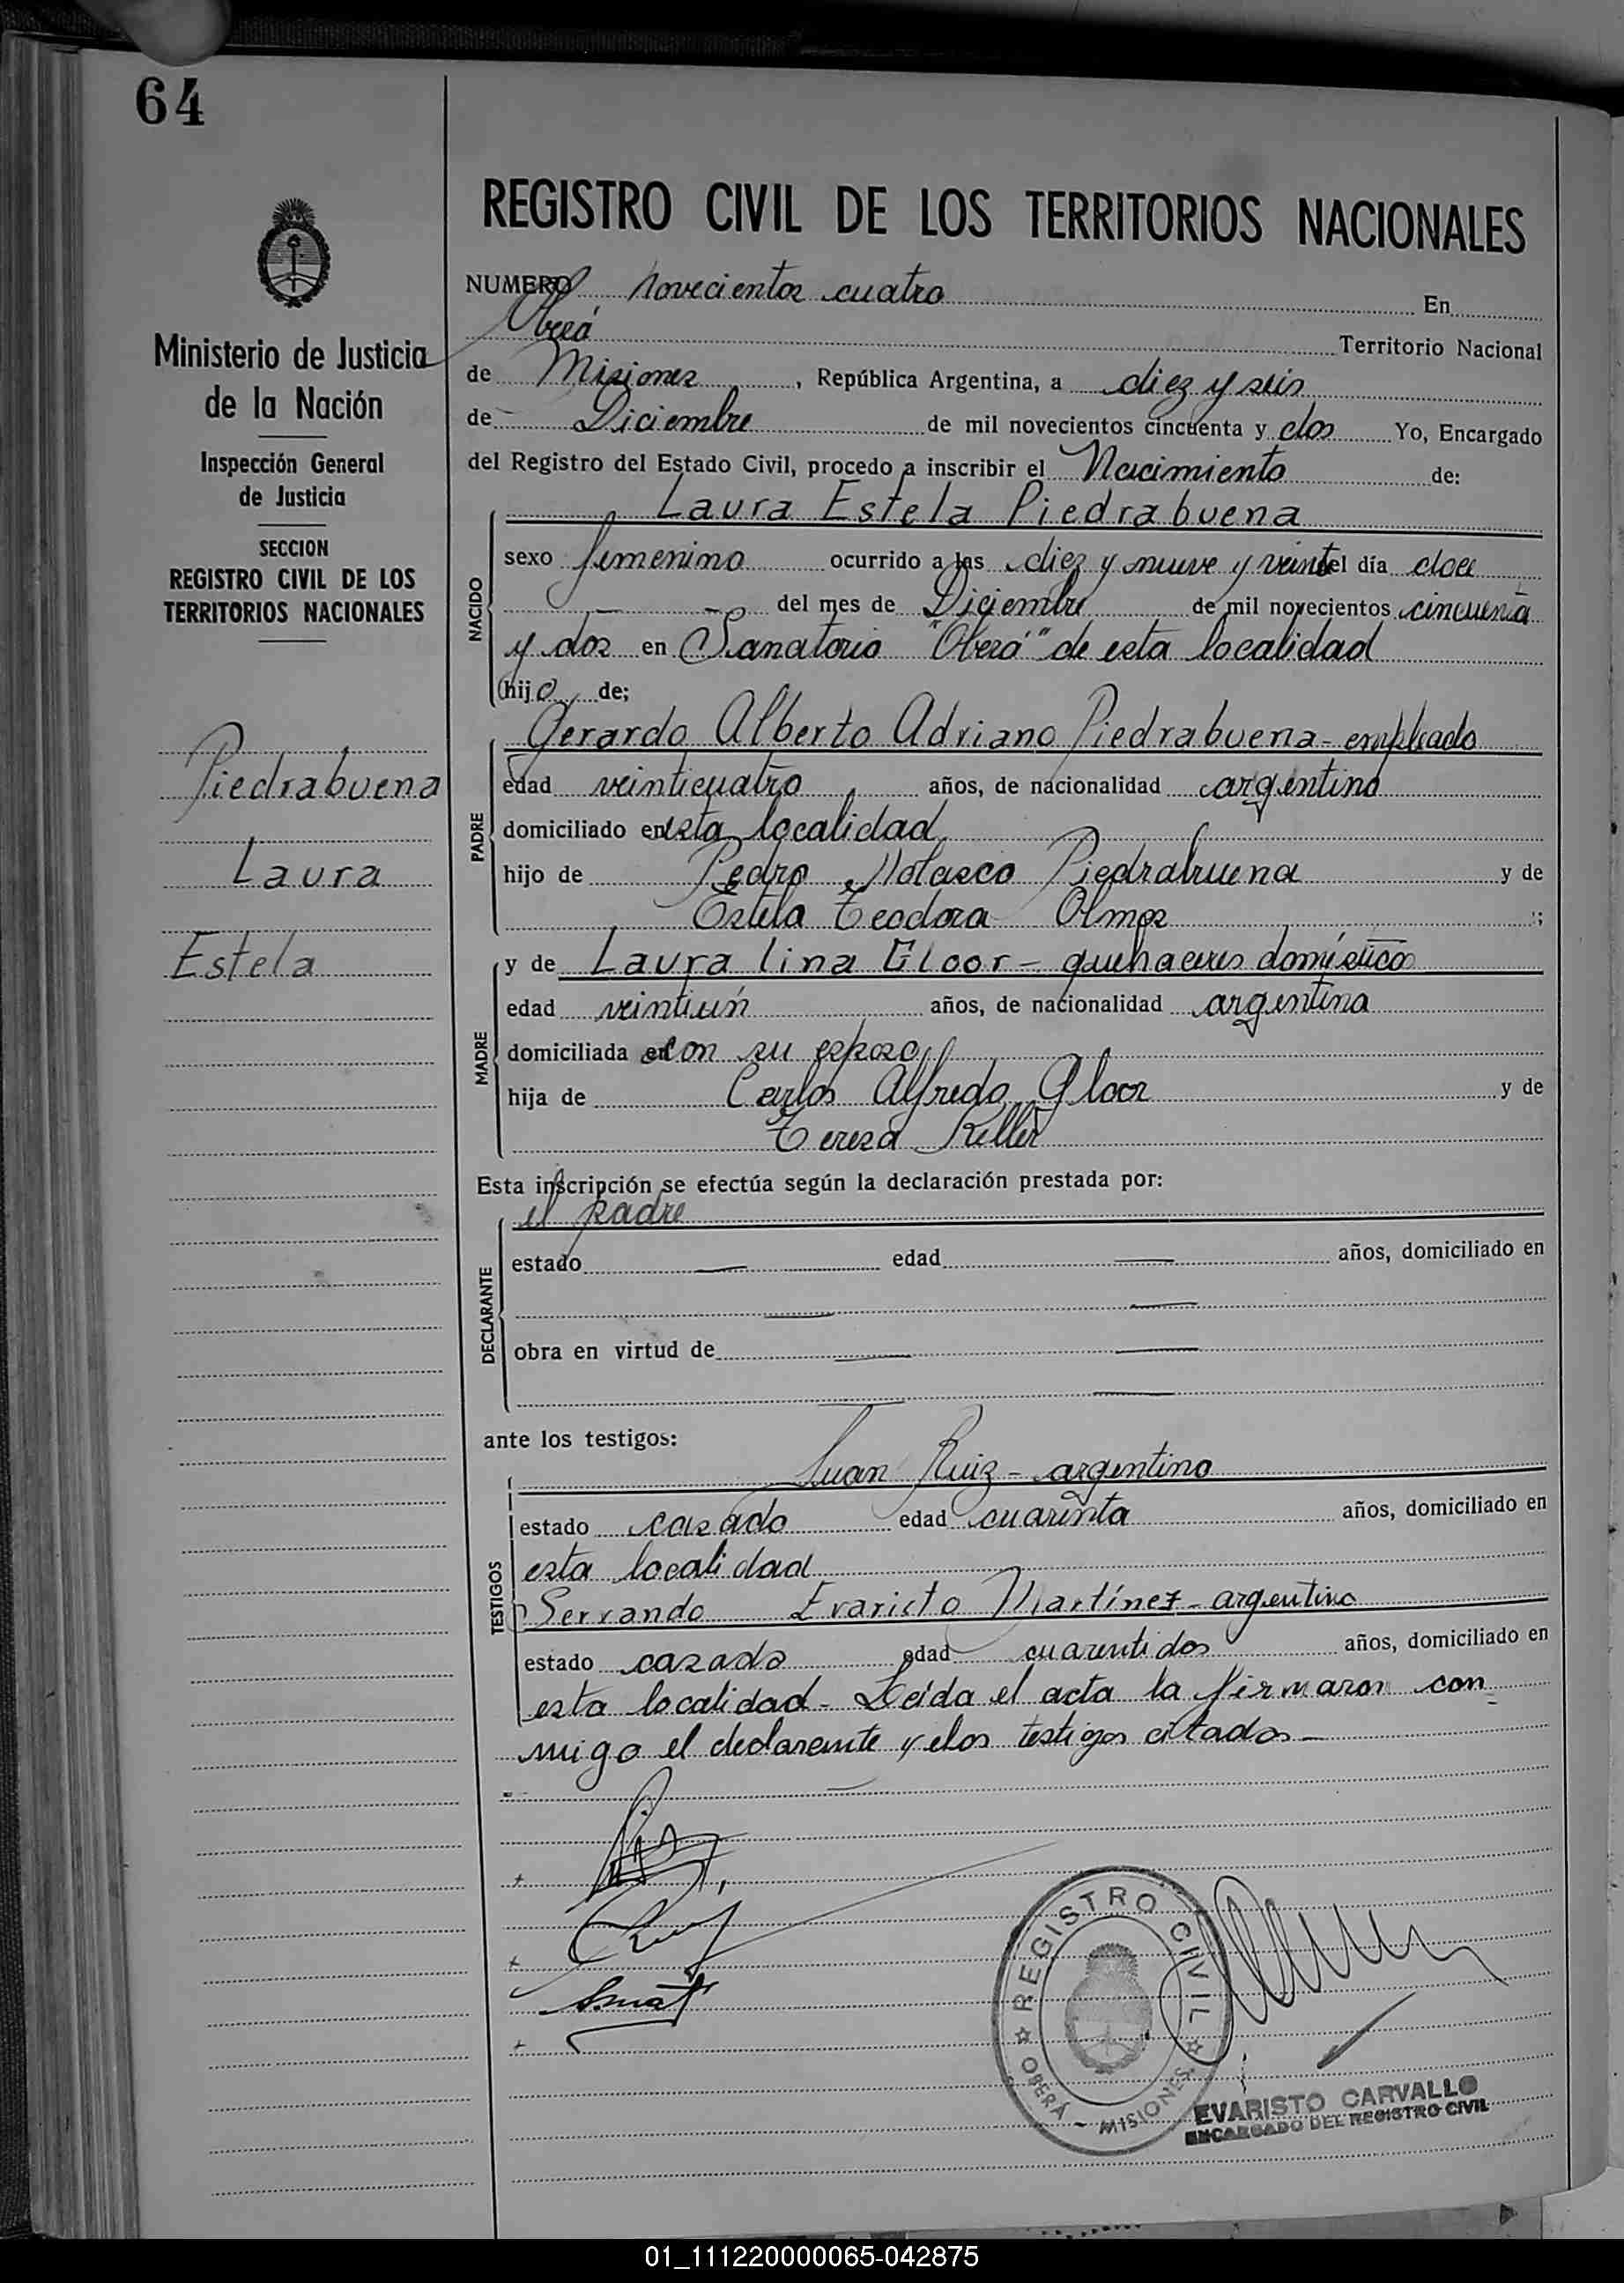 64
Ministerio de Justicia
de la Nación
Inspección General
de Justicia
SECCION
REGISTRO CIVIL DE LOS
TERRITORIOS NACIONALES
Piedrabuena
Laura
Estela
REGISTRO CIVIL DE LOS TERRITORIOS NACIONALES
NUMERO novecientos cuatro En
Oberá Territorio Nacional
de Misiones, República Argentina, a diez y seis
de Diciembre de mil novecientos cincuenta y dos Yo, Encargado
del Registro del Estado Civil, procedo a inscribir el Nacimiento de:
Laura Estela Piedrabuena
NACIDO
sexo femenino ocurrido a las diez y nueve y veinte del día doce
del mes de Diciembre de mil novecientos cincuenta
y dos en Sanatorio "Oberá" de esta localidad
hija de;
Gerardo Alberto Adriano Piedrabuena - empleado
PADRE
edad veinticuatro años, de nacionalidad argentina
domiciliado en esta localidad
hijo de Pedro Nolasco Piedrabuena y de
Estela Teodora Olmos ;
MADRE
y de Laura Lina Gloor - quehaceres domésticos
edad veintiún años, de nacionalidad argentina
domiciliada en con su esposo
hija de Carlos Alfredo Gloor y de
Teresa Keller
Esta inscripción se efectúa según la declaración prestada por:
el padre
DECLARANTE
estado — edad — años, domiciliado en
— —
obra en virtud de — —
— —
ante los testigos:
Juan Ruiz - argentino
TESTIGOS
estado casado edad cuarenta años, domiciliado en
esta localidad
Servando Evaristo Martínez - argentino
estado casado edad cuarentidos años, domiciliado en
esta localidad - Leída el acta la firmaron con
migo el declarante y los testigos citados -
REGISTRO CIVIL
OBERÁ - MISIONES
EVARISTO CARVALLO
ENCARGADO DEL REGISTRO CIVIL
01_111220000065-042875